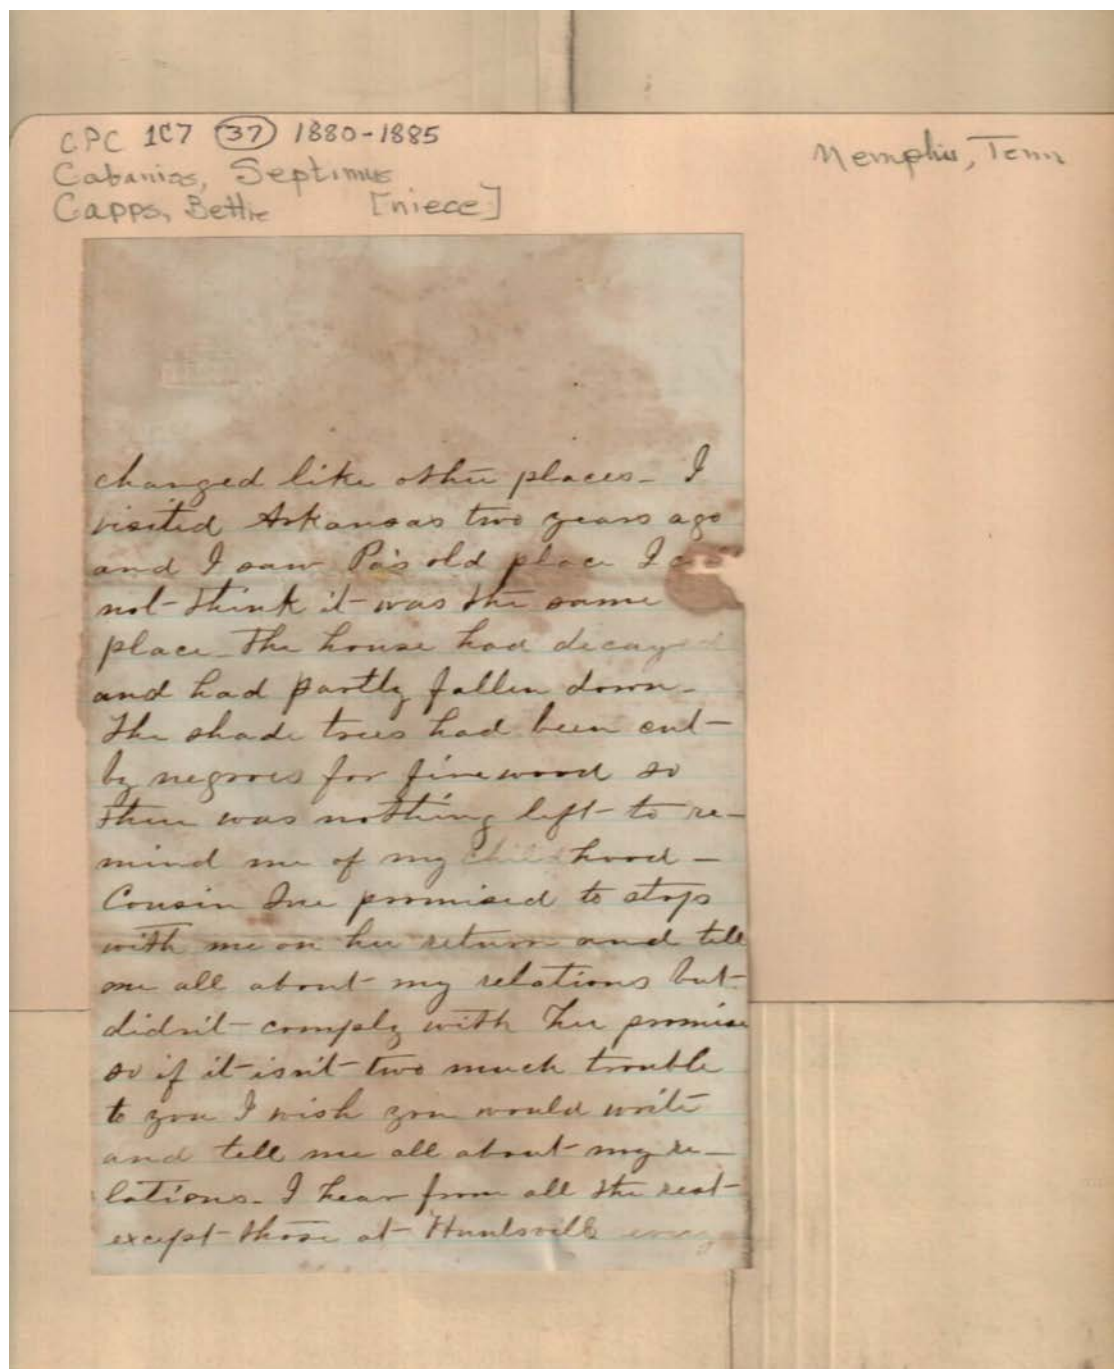 CPC 1C7 (37) 1880-1885
Memphis, Tenn
Cabaniss, Septimus
Capps, Bettie [niece]
changed like other places - I
visited Arkansas two years ago
and I saw Pa's old place I
not think it was the same
place - The house had decayed
and had partly fallen down -
The shade trees had been cut
by negroes for fire wood so
there was nothing left to re-
mind me of my childhood -
Cousin promised to stop
with me on her return and tell
me all about my relations but
didn't comply with her promise
so if it isn't two much trouble
to you I wish you would write
and tell me all about my re-
lations - I hear from all the rest
except those at Huntsville